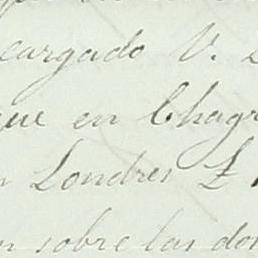 cargado V.
que en Chagr
n Londres £
n sobre las do